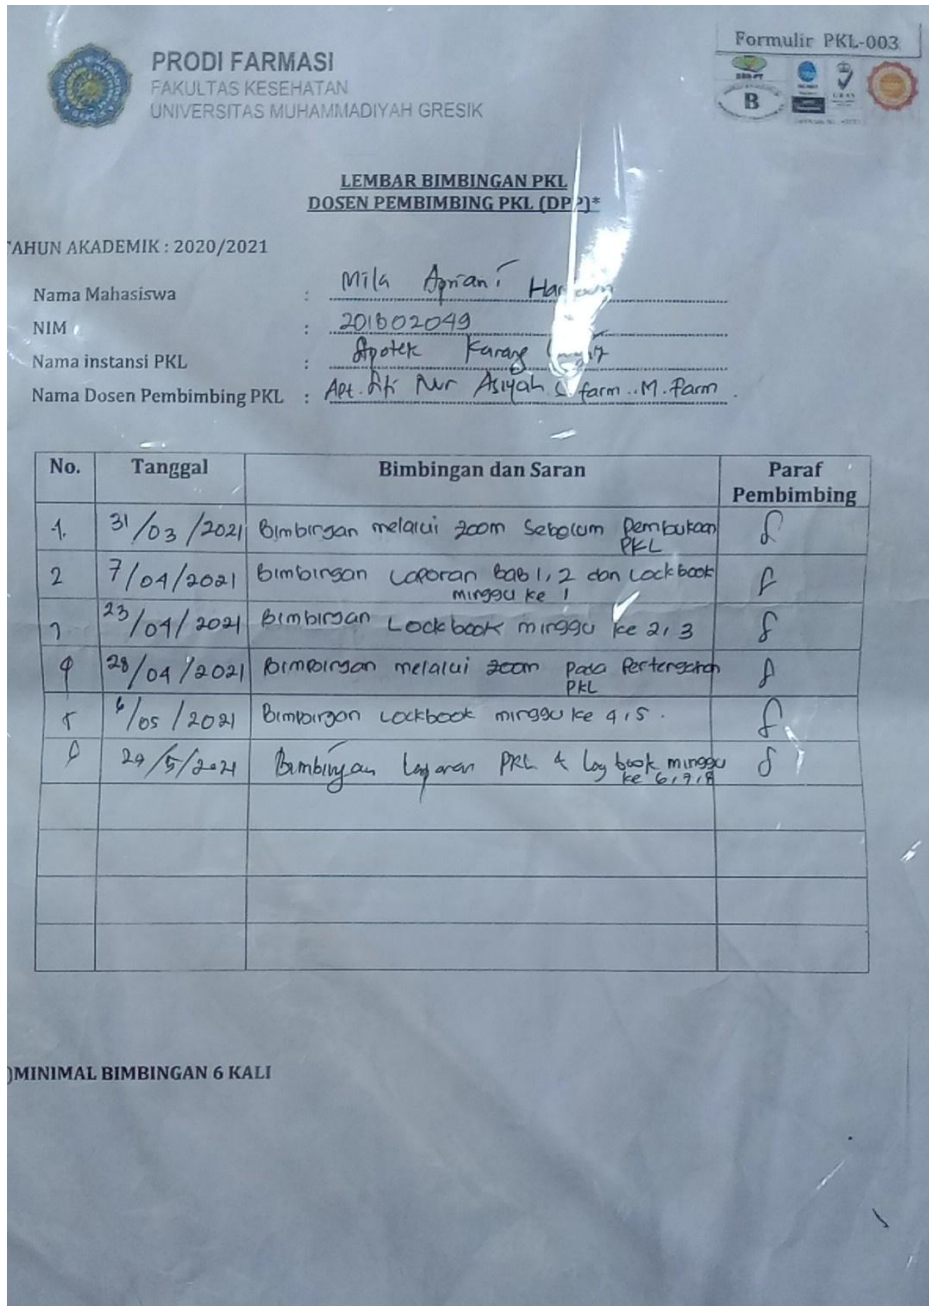 Formulir PKL-003
PRODI FARMASI
FAKULTAS KESEHATAN
UNIVERSITAS MUHAMMADIYAH GRESIK
B
LEMBAR BIMBINGAN PKL
DOSEN PEMBIMBING PKL (DPP)*
TAHUN AKADEMIK : 2020/2021
Nama Mahasiswa : Mila Apriani
NIM : 201802049
Nama instansi PKL : Apotek Karang
Nama Dosen Pembimbing PKL : Apt. Siti Nur Asiyah S. farm.. M. farm
No. Tanggal Bimbingan dan Saran Paraf Pembimbing
1. 31/03/2021 Bimbingan melalui zoom Sebelum Pembukaan PKL
2 7/04/2021 Bimbingan Laporan Bab 1, 2 dan Lockbook minggu ke 1
3 23/04/2021 Bimbingan Lockbook minggu ke 2, 3
4 28/04/2021 Bimbingan melalui zoom pada Pertengahan PKL
5 6/05/2021 Bimbingan Lockbook minggu ke 4, 5.
6 29/5/2021 Bimbingan Laporan PKL & Log book minggu ke 6, 7, 8
)MINIMAL BIMBINGAN 6 KALI